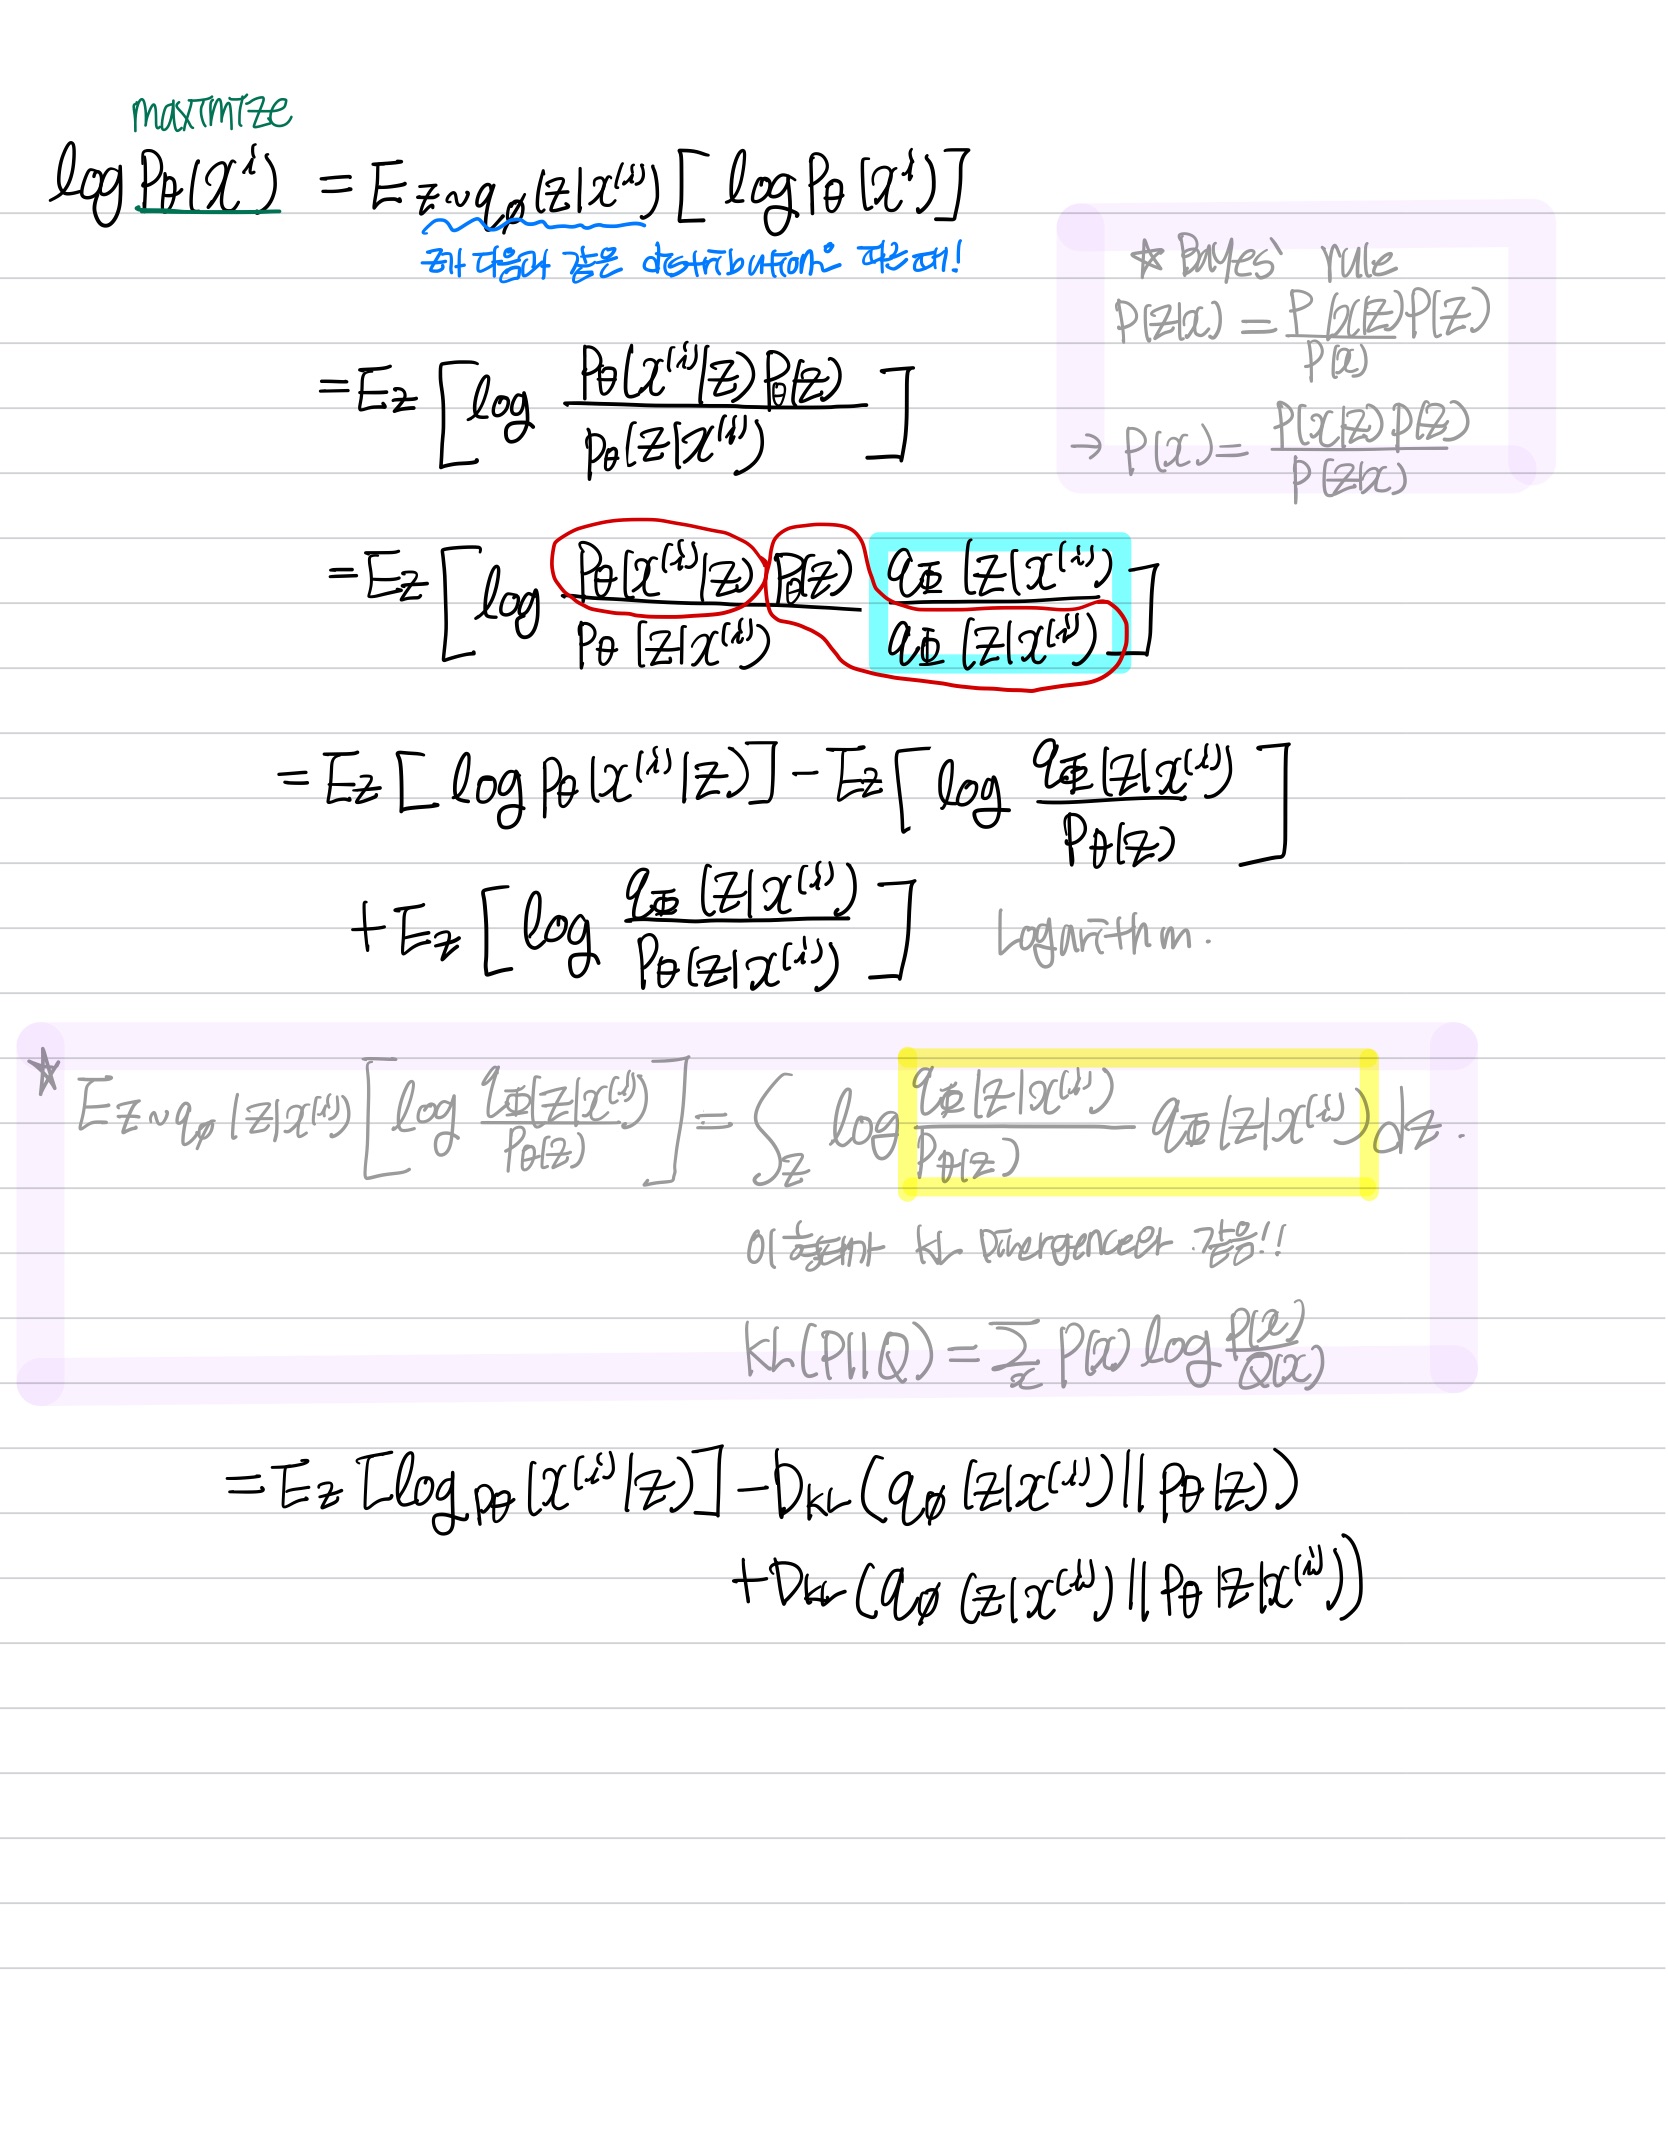 maximize
log Pθ(x^i) = E z~qφ(z|x^(i)) [ log Pθ(x^i) ]
z가 다음과 같은 distribution을 따르는데!
= Ez [ log Pθ(x^(i)|z) Pθ(z) / Pθ(z|x^(i)) ]
☆ Bayes' rule
P(z|x) = P(x|z)P(z) / P(x)
→ P(x) = P(x|z) P(z) / P(z|x)
= Ez [ log Pθ(x^(i)|z) Pθ(z) / Pθ(z|x^(i)) qΦ(z|x^(i)) / qΦ(z|x^(i)) ]
= Ez [ log Pθ(x^(i)|z) ] - Ez [ log qΦ(z|x^(i)) / Pθ(z) ]
+ Ez [ log qΦ(z|x^(i)) / Pθ(z|x^(i)) ] Logarithm.
☆ E z~qφ(z|x^(i)) [ log qΦ(z|x^(i)) / Pθ(z) ] = ∫z log qΦ(z|x^(i)) / Pθ(z) qΦ(z|x^(i)) dz.
이 형태가 KL Divergence와 같음!!
KL(P||Q) = Σx P(x) log P(x) / Q(x)
= Ez [ log Pθ(x^(i)|z) ] - DKL(qφ(z|x^(i)) || Pθ(z))
+ DKL(qφ(z|x^(i)) || Pθ(z|x^(i)))